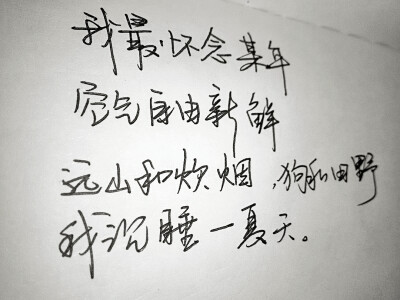 我最怀念某年
空气自由新鲜
远山和炊烟,狗和田野
我沉睡一夏天。